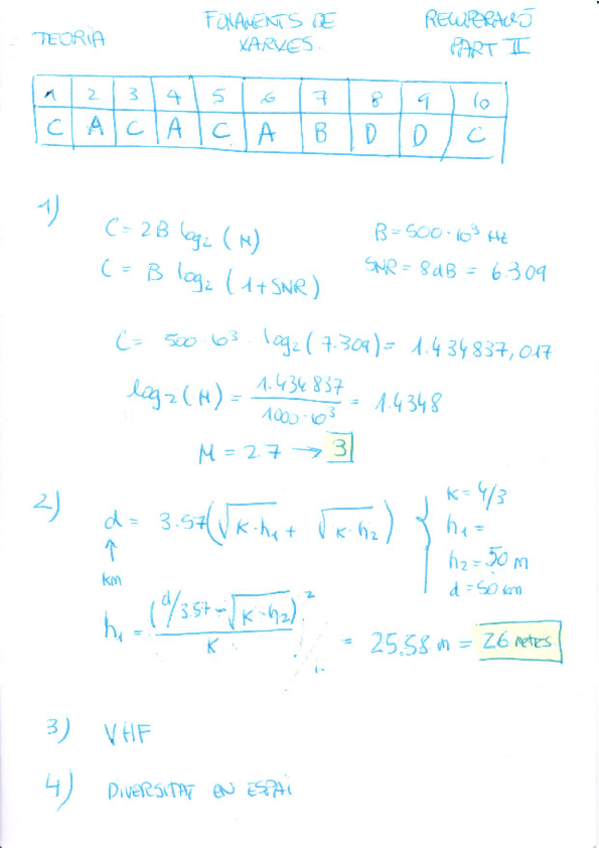 TEORIA
FONAMENTS DE
XARXES.
RECUPERACIÓ
PART II
1 2 3 4 5 6 7 8 9 10
C A C A C A B D D C
1)
C = 2B log₂ (M)
B = 500·10³ Hz
C = B log₂ (1+SNR)
SNR = 8dB = 6.309
C = 500·10³ · log₂(7.309) = 1.434837,017
log₂(M) = 1.434837 / 1000·10³ = 1.4348
M = 2.7 → 3
2)
d = 3.57(√K·h₁ + √K·h₂)
K = 4/3
h₁ =
h₂ = 50 m
d = 50 km
↑
km
h₁ = (d/3.57 - √K·h₂)² / K = 25.58 m = 26 metres
3) VHF
4) DIVERSITAT EN ESPAI